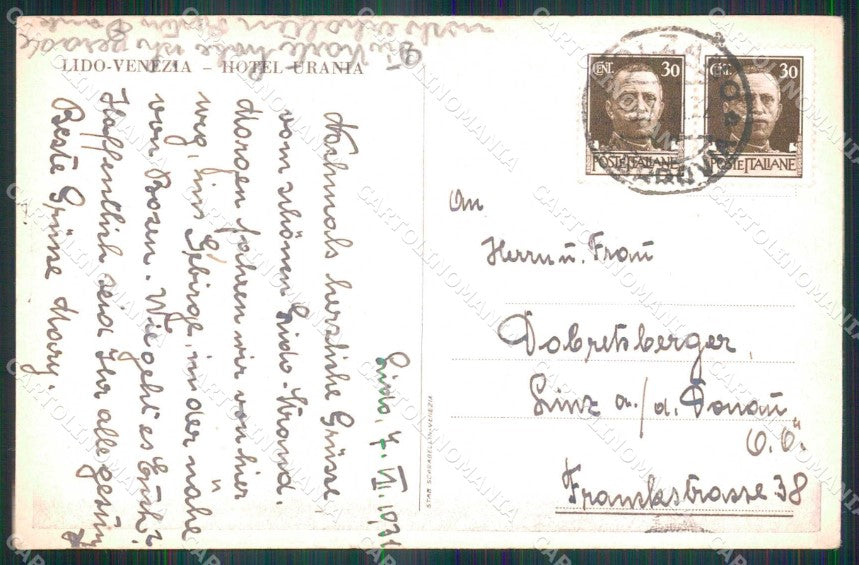 LIDO-VENEZIA - HOTEL URANIA
Lido, 7. VI. 19
Nochmals herzliche Grüsse
vom schönen Lido-Strand.
Morgen fahren wir von hier
weg, ins Gebirge, in der nähe
von Bozen. Wie geht es Euch?
Hoffentlich seid Ihr alle gesund
Beste Grüsse Mary.
Die Karte habe ich gerade
CENT. 30
POSTE ITALIANE
CENT. 30
POSTE ITALIANE
An
Herrn u. Frau
Dobretsberger,
Linz a./d. Donau
O.Ö.
Franckstrasse 38
STAB. SCARABELLIN-VENEZIA
CARTOLINOMANIA